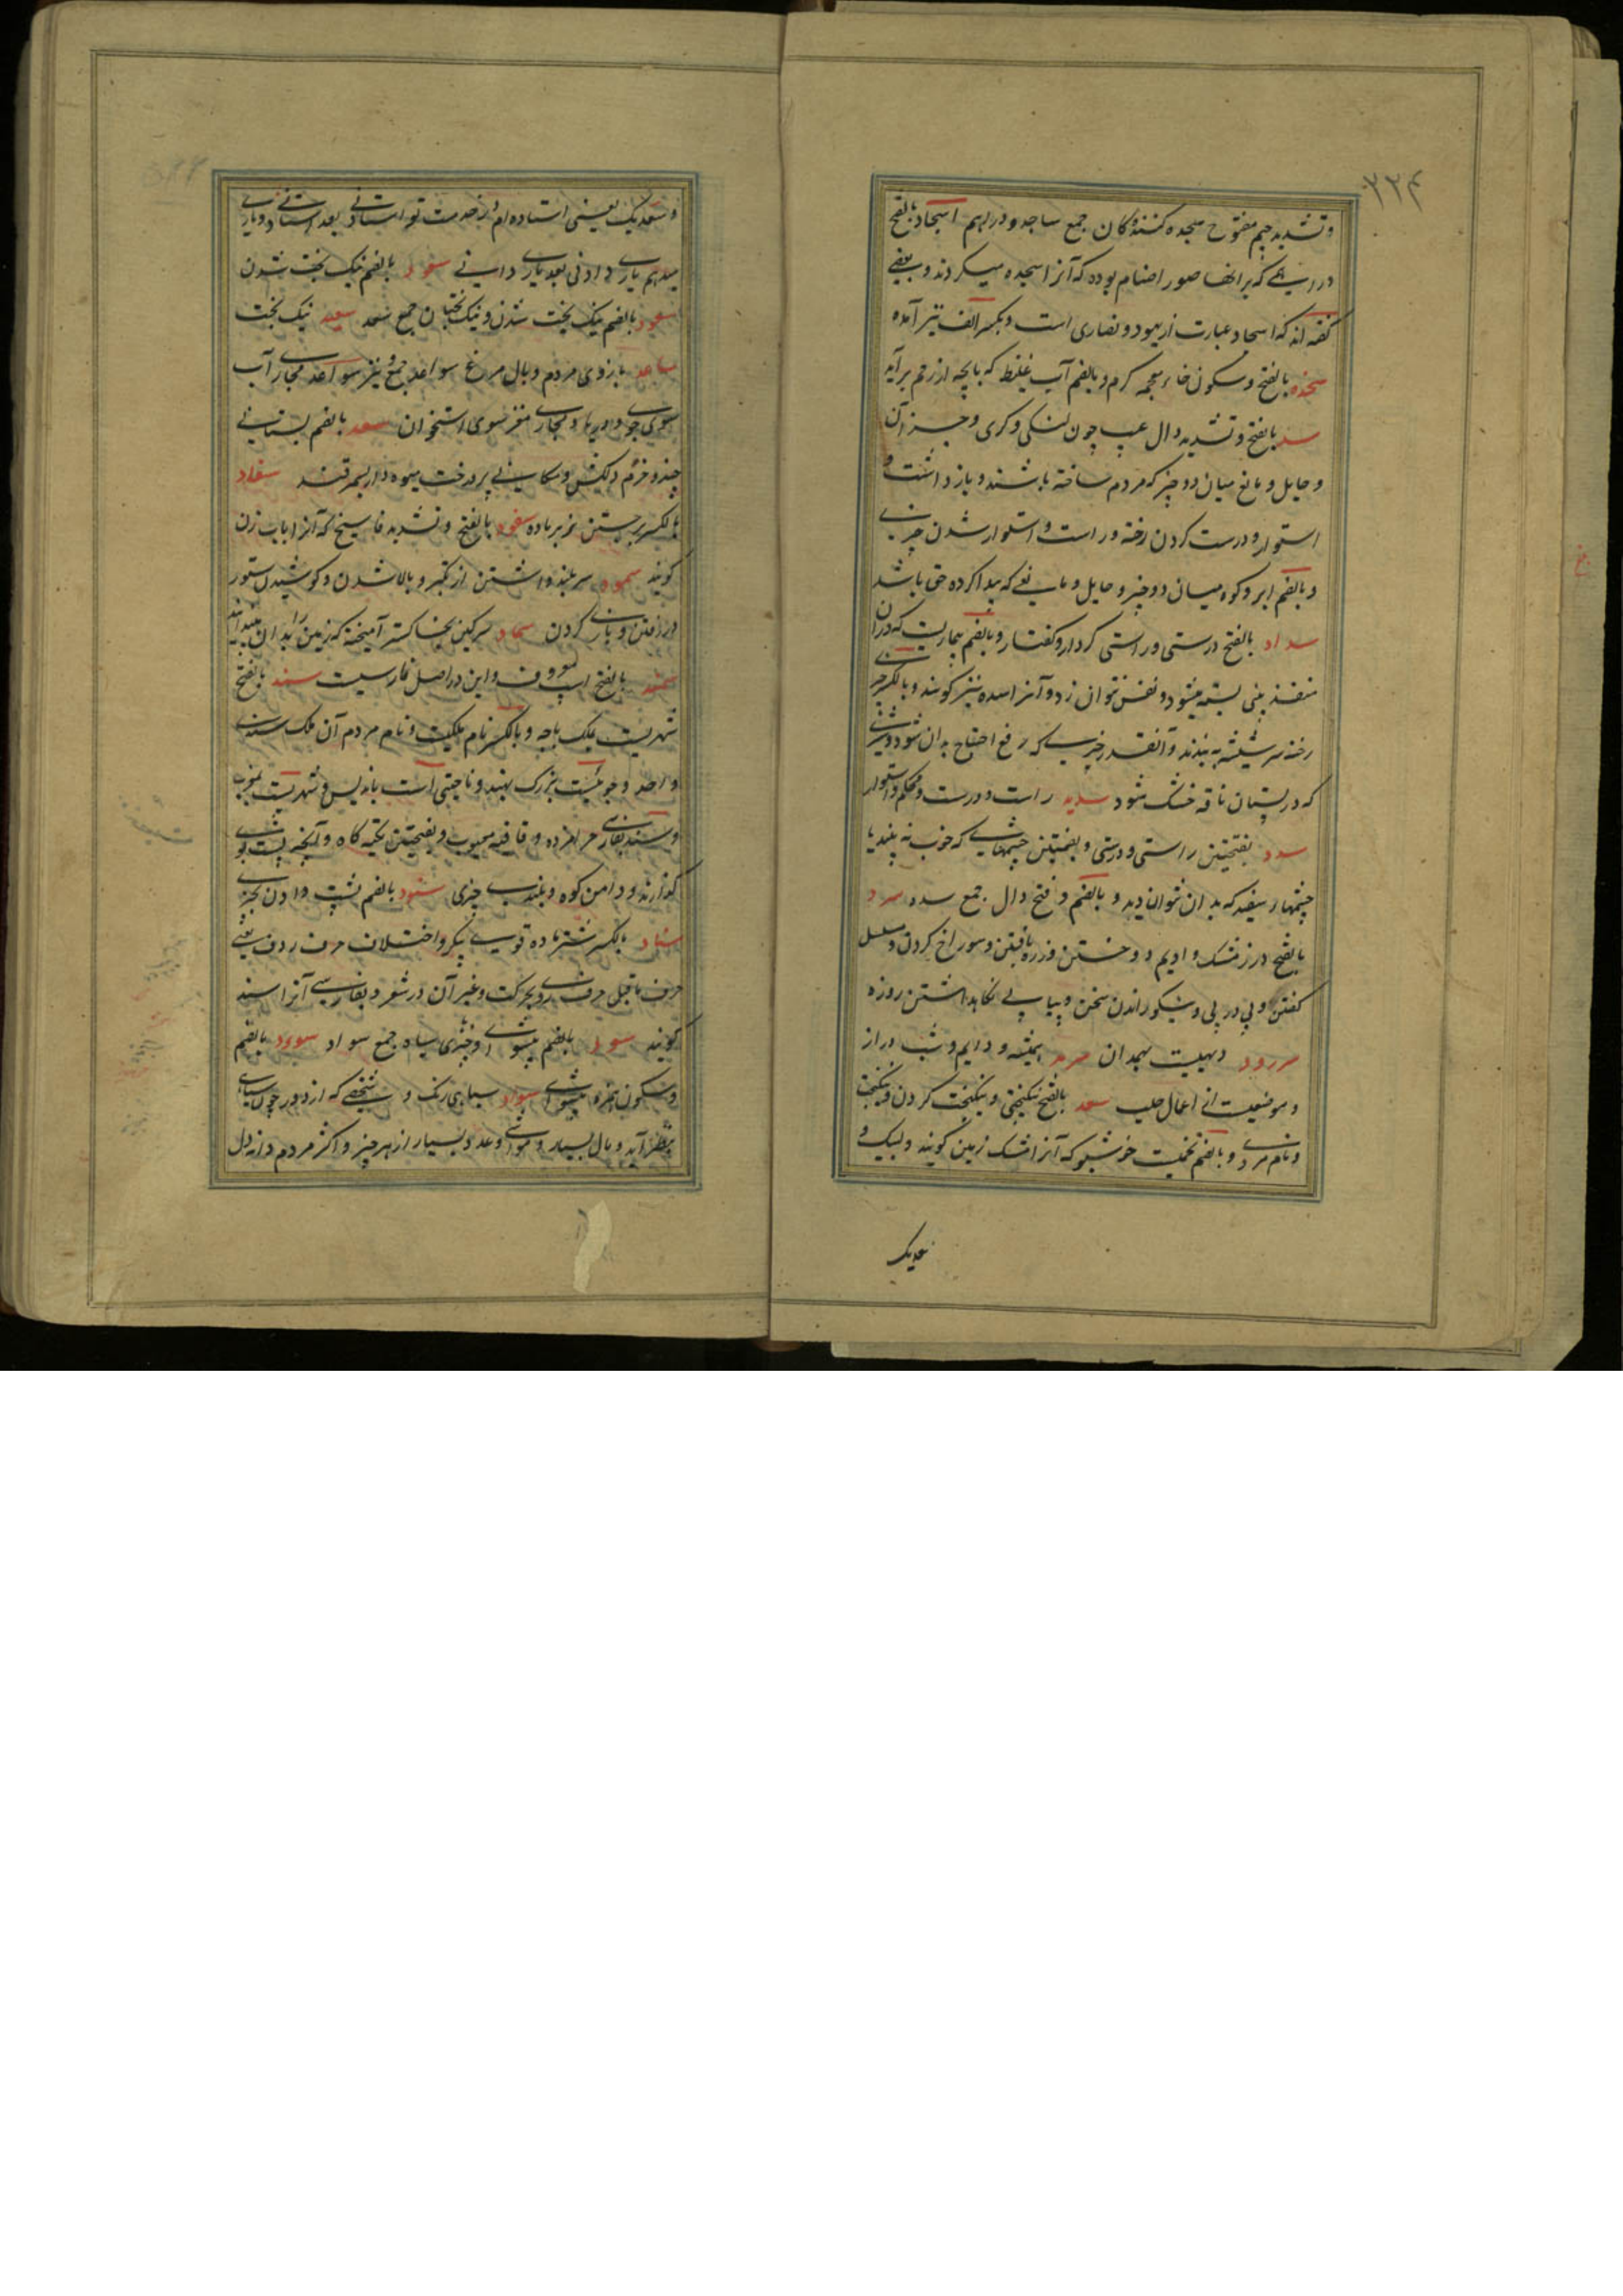 ۲۲۴
و تشدید جیم مفتوح سجده کنندگان جمع ساجد و دراهم اسجاد بالفتح
در اسیمی که بر انها صور اصنام بوده که آنرا سجده میکردند و بعضی
گفته اند که اسجاد عبارت از یهود و نصاری است و بکسر الف نیز آمده
سخد بالفتح و سکون خاء معجمه گرم و بالضم آب غلیظ که با بچه از رحم برآید
سد بالفتح و تشدید دال عیب چون لنگی و کری و جز آن
و حایل و مانع میان دو چیز که مردم ساخته باشند و بازداشت و
استوار و درست کردن رخنه و راست و استوار شدن چیزی
و بالضم ابر و کوه میان دو چیز و حایل و مانعی که پیدا کرده حق باشد
سداد بالفتح درستی و راستی کردار و گفتار و بالضم بیماریست که دران
منفذ بینی بسته میشود و نفس نتوان زد و آنرا سده نیز گویند و بالکسر چیزی
رخنه سر شیشه به بندند و آنقدر چیزی که رفع احتیاج بدان شود و شیری
که در پستان ناقه خشک شود سدید راست و درست و محکم و استوار
سدد بفتحتین راستی و درستی و بضمتین چشمهایی که خوب نه بیند یا
چشمهای سفید که بدان نتوان دید و بالضم و فتح دال جمع سده سرد
بالفتح درز مشک و ادیم دوختن و زره بافتن و سوراخ کردن و مسلسل
گفتن و پی در پی و نیکو راندن سخن و پیاپی نگاهداشتن روزه
سررود دهیست بهمدان سرمد همیشه و دایم و شب دراز
و موضعیست از اعمال حلب سعد بالفتح نیکبختی و نیکبخت کردن و نیکبخت
و نام مردی و بالضم تخمیست خوشبو که آنرا مشک زمین گویند و لبیک و
عدیک
و سعدیک یعنی استاده ام در خدمت تو استادنی بعد استادنی و یاری
میدهم یاری دادنی بعد یاری دادنی سعود بالضم نیک بخت شدن
سعود بالضم نیک بخت شدن و نیک بختان جمع سعد سعید نیک بخت
ساعد بازوی مردم و بال مرغ سواعد جمع و نیز سواعد مجاری آب
سوی جوی و دریا و مجاری مغز سوی استخوان سغد بالضم بستانی
چند و خرم دلکش و مکانی پر درخت میوه دار بسمرقند سفاد
بالکسر برجستن نر بر ماده سفود بالفتح و تشدید فا سیخ که آنرا باب زن
گویند سمود سر بلند داشتن از تکبر و بالا شدن و کوشیدن ستور
در رفتن و بازی کردن سماد سرگین بخاکستر آمیخته که زمین را بدان
سمند بالفتح اسپ معروف و این در اصل فارسیست سند بالفتح
شهریست بملک باجه و بالکسر نام ملکیست و نام مردم آن ملک سندی
واحد و جوئیست بزرگ بهند و ناحیتی است باندلس و شهریست بمغرب
و سند بفارسی حرامزده و قافیه معیوب و بفتحتین تکیه گاه و آنچه پشت بوی
گذارند و دامن کوه و بلندی چیزی سنود بالضم پشت دادن بچیزی
سناد بالکسر شتر ماده قوی پیکر و اختلاف حرف ردف یعنی
حرف ماقبل حرف روی بحرکت و غیر آن در شعر و بفارسی آنرا سند
گویند سود بالضم پیشوائی و چیزهای سیاه جمع سواد سودد بالضم
و سکون همزه پیشوائی سواد سیاهی رنگ و شخصی که از دور چون سیاهی
بنظر آید و مال بسیار و مواشی و عدد بسیار از هر چیز و اکثر مردم و دانه دل